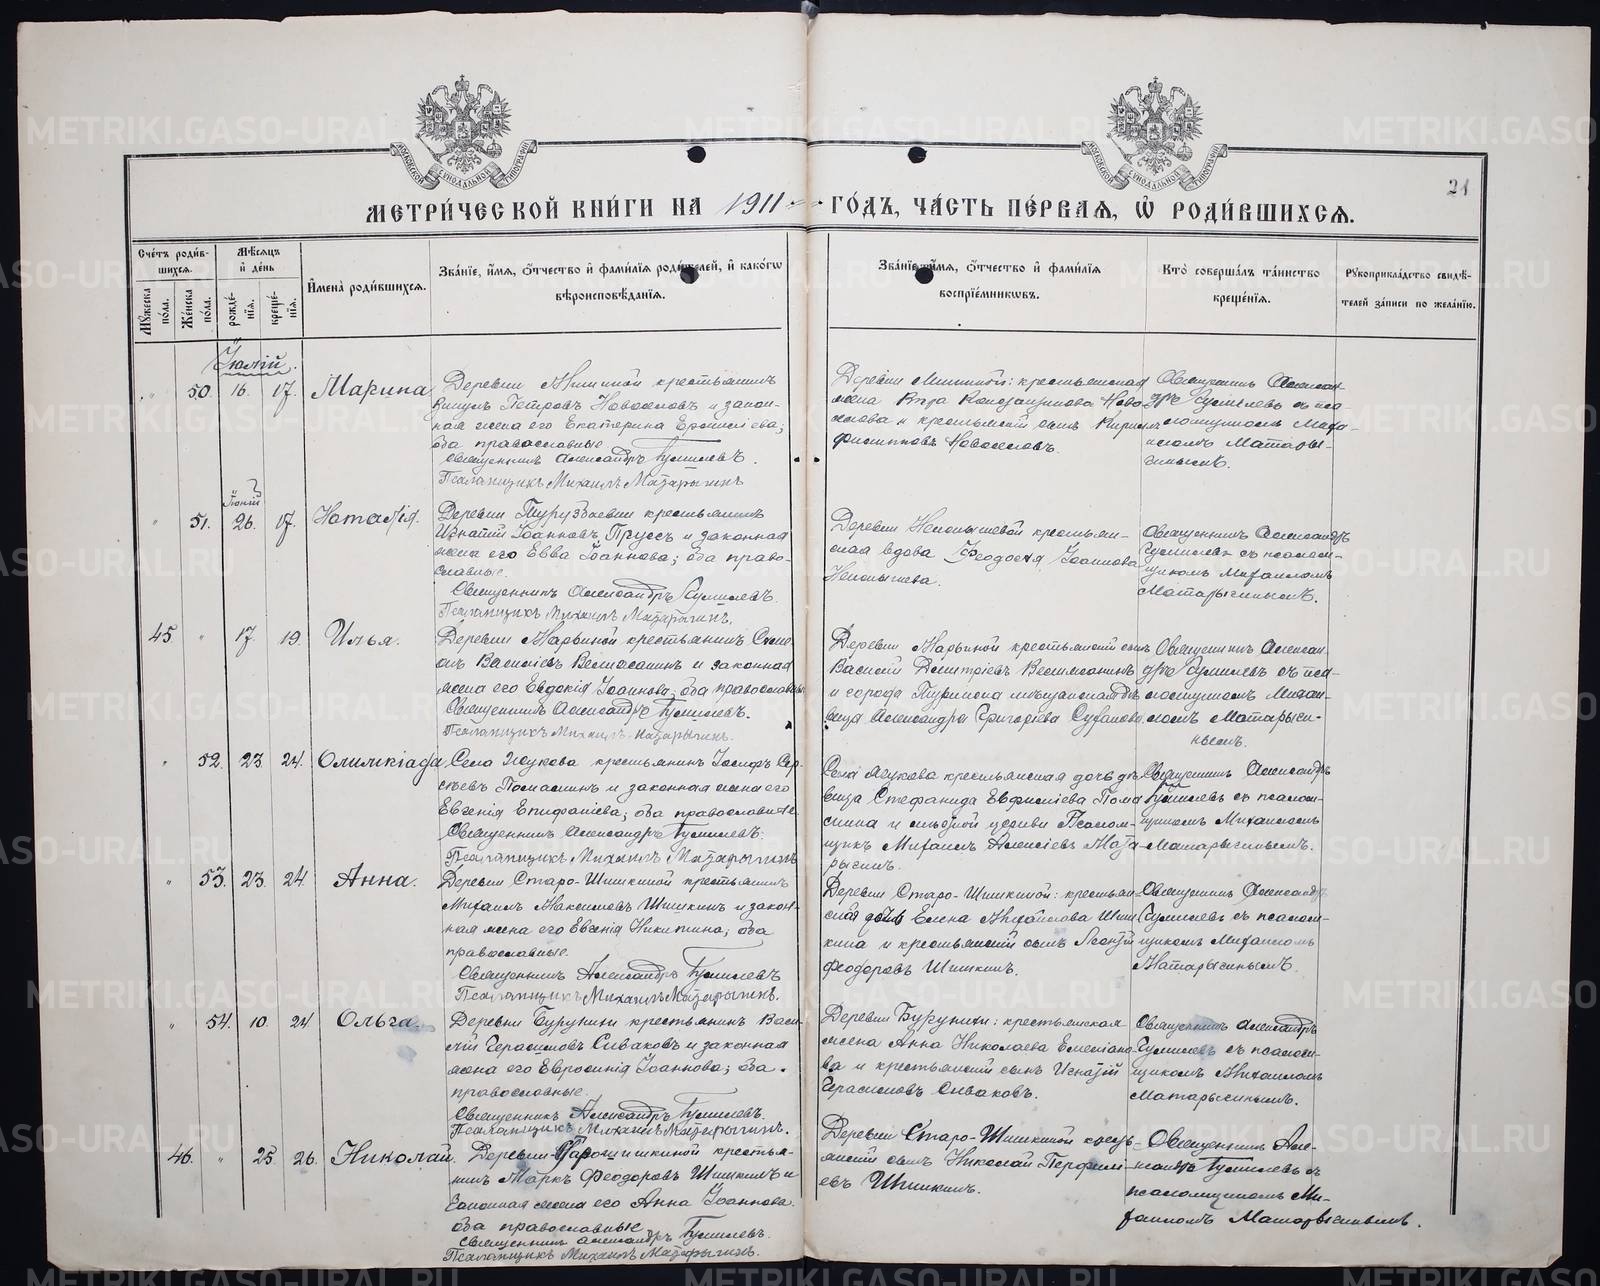 21
МЕТРИ́ЧЕСКОЙ КНИ́ГИ НА 1911 ГО́ДЪ, ЧА́СТЬ ПЕ́РВАЯ, Ѽ РОДИ́ВШИХСЯ.
Сче́тъ роди́в-
шихся.
Мꙋ́жеска по́ла.
Же́нска по́ла.
Мѣ́сяцъ и де́нь
рожде́-
нїя.
креще́-
нїя.
И҆мена̀ роди́вшихся.
Зва́нїе, и҆́мя, о҆́тчество и҆ фами́лїя роди́телей, и҆ како́гѡ
вѣроисповѣ́данїя.
Зва́нїе, и҆́мя, о҆́тчество и҆ фами́лїя
воспрїе́мникѡвъ.
Кто̀ соверша́лъ та́инство
креще́нїя.
Рꙋкоприкла́дство свидѣ́-
телей за́писи по жела́нїю.
Іюлій.
50. 16. 17. Марина
крестьянинъ
Петровъ Новоселовъ и закон-
ная жена его Екатерина
оба православные
Священникъ Александръ Гумилевъ.
Псаломщикъ Михаилъ Матарыгинъ
крестьянская
жена Вѣра Константинова Ново-
селова и крестьянскій сынъ Кирилъ
Филипповъ Новоселовъ.
Священникъ Алексан-
дръ Гумилевъ съ пса-
ломщикомъ Миха-
иломъ Матары-
гинымъ.
Іюній
51. 26. 17. Наталія.
Деревни крестьянинъ
Игнатій Іоанновъ Пруссъ и законная
жена его Евва Іоаннова; оба право-
славные.
Священникъ Александръ Гумилевъ.
Псаломщикъ Михаилъ Матарыгинъ.
Деревни крестьян-
ская вдова Ѳеодосія Іоаннова
Священникъ Александръ
Гумилевъ съ псалом-
щикомъ Михаиломъ
Матарыгинымъ.
45 17. 19. Илья.
Деревни Марьиной крестьянинъ Симе-
онъ Василіевъ и законная
жена его Евдокія Іоаннова; оба православны
Священникъ Александръ Гумилевъ.
Псаломщикъ Михаилъ Матарыгинъ.
Деревни Марьиной крестьянскій сынъ
Василій Димитріевъ
и города Туринска мѣщанская дѣ-
вица Александра Григорьева
Священникъ Алексан-
дръ Гумилевъ съ пса-
ломщикомъ Михаи-
ломъ Матарыги-
нымъ.
52. 23. 24. Олимпіада
Села Жукова крестьянинъ Іосифъ Сер-
гѣевъ и законная жена его
Евгенія Епифаніева; оба православные
Священникъ Александръ Гумилевъ.
Псаломщикъ Михаилъ Матарыгинъ
Села Жукова крестьянская дочь дѣ-
вица Стефанида Евфиміева
и мѣстной церкви Псалом-
щикъ Михаилъ Алексіевъ Мата-
рыгинъ.
Священникъ Александръ
Гумилевъ съ псалом-
щикомъ Михаиломъ
Матарыгинымъ.
53. 23. 24. Анна.
Деревни Старо-Шишкиной крестьянинъ
Михаилъ Максимовъ Шишкинъ и закон-
ная жена его Евгенія Никитина; оба
православные.
Священникъ Александръ Гумилевъ
Псаломщикъ Михаилъ Матарыгинъ.
Деревни Старо-Шишкиной: крестьян-
ская дочь Елена Михайлова Шиш-
кина и крестьянскій сынъ Георгій
Ѳеодоровъ Шишкинъ.
Священникъ Александръ
Гумилевъ съ псалом-
щикомъ Михаиломъ
Матарыгинымъ.
54. 10. 24 Ольга.
Деревни Бурунихи крестьянинъ Васи-
лій Герасимовъ Сиваковъ и законная
жена его Евфросинія Іоаннова; оба
православные.
Священникъ Александръ Гумилевъ.
Псаломщикъ Михаилъ Матарыгинъ.
Деревни Бурунихи: крестьянская
жена Анна Николаева Емеліано-
ва и крестьянскій сынъ Игнатій
Герасимовъ Сиваковъ.
Священникъ Александръ
Гумилевъ съ псалом-
щикомъ Михаиломъ
Матарыгинымъ.
46. 25. 26. Николай.
Деревни Старо-Шишкиной крестья-
нинъ Маркъ Ѳеодоровъ Шишкинъ и
законная жена его Анна Іоаннова
оба православные
Священникъ Александръ Гумилевъ.
Псаломщикъ Михаилъ Матарыгинъ.
Деревни Старо-Шишкиной кресть-
янскій сынъ Николай Перфилі-
евъ Шишкинъ.
Священникъ Але-
ксандръ Гумилевъ съ
псаломщикомъ Ми-
хаиломъ Матарыгинымъ.
METRIKI.GASO-URAL.RU